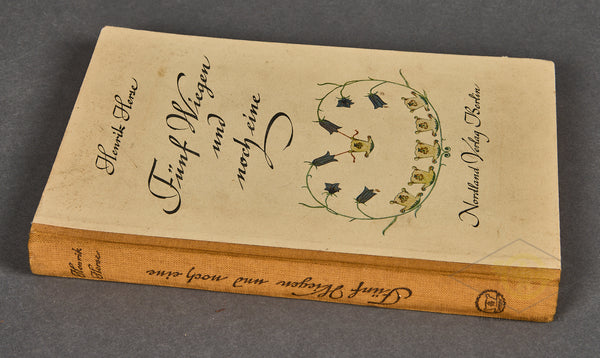 Henrik Herse
Fünf Wiegen
und
noch eine
Nordland Verlag Berlin
Henrik
Herse
Fünf Wiegen und noch eine